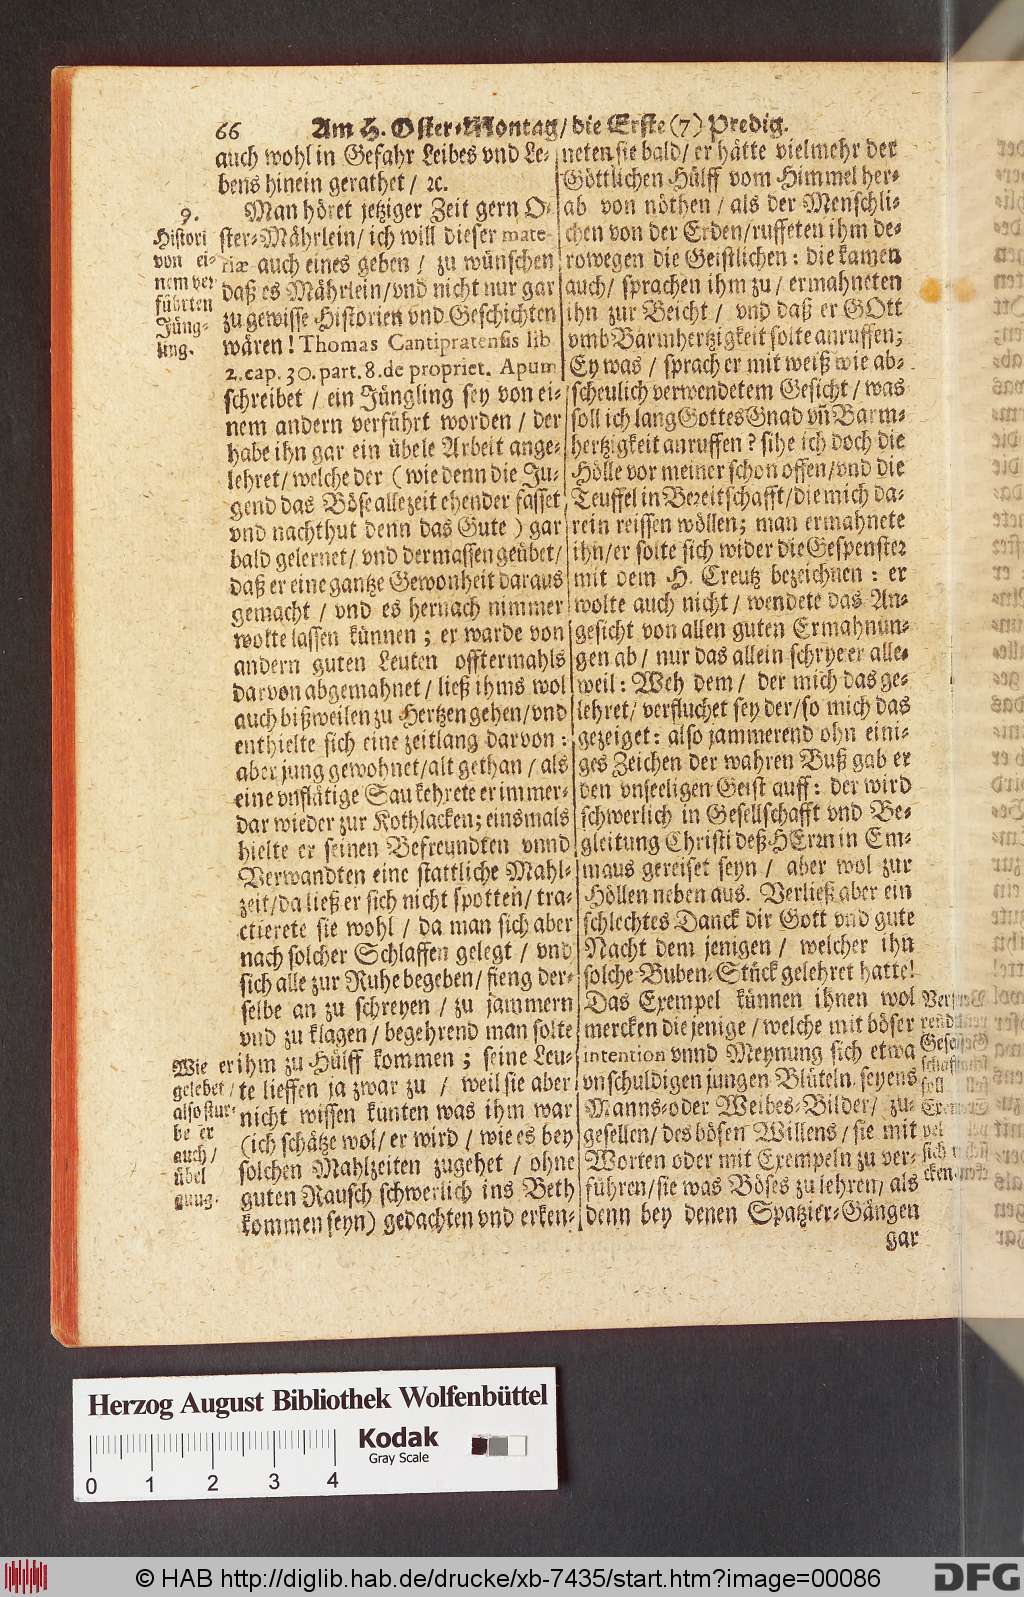 66 Am H. Oster-Montag/ die Erste (7) Predig.
auch wohl in Gefahr Leibes vnd Le-
bens hinein gerathet/ ꝛc.
9.
Histori
von ei-
nem ver
führten
Jüng-
ling.
Man höret jetziger Zeit gern O-
ster-Mährlein/ ich will dieser mate-
riæ auch eines geben / zu wünschen
daß es Mährlein/ vnd nicht nur gar
zu gewisse Historien vnd Geschichten
wären! Thomas Cantipratensis lib.
2. cap. 30. part. 8. de propriet. Apum
schreibet / ein Jüngling sey von ei-
nem andern verführt worden / der
habe ihn gar ein übele Arbeit ange-
lehret/ welche der ( wie denn die Ju-
gend das Böse allezeit ehender fasset
vnd nachthut denn das Gute ) gar
bald gelernet/ vnd dermassen geübet/
daß er eine gantze Gewonheit daraus
gemacht / vnd es hernach nimmer
wolte lassen künnen ; er warde von
andern guten Leuten offtermahls
darvon abgemahnet / ließ ihms wol
auch bißweilen zu Hertzen gehen/ vnd
enthielte sich eine zeitlang darvon :
aber jung gewohnet/ alt gethan / als
eine vnflätige Sau kehrete er immer-
dar wieder zur Kothlacken; einsmals
hielte er seinen Befreundten vnnd
Verwandten eine stattliche Mahl-
zeit/ da ließ er sich nicht spotten/ tra-
ctierete sie wohl / da man sich aber
nach solcher Schlaffen gelegt / vnd
sich alle zur Ruhe begeben/ fieng der-
selbe an zu schreyen / zu jammern
vnd zu klagen / begehrend man solte
ihm zu Hülff kommen ; seine Leu-
te lieffen ja zwar zu / weil sie aber
nicht wissen kunten was ihm war
(ich schätze wol/ er wird / wie es bey
solchen Mahlzeiten zugehet / ohne
guten Rausch schwerlich ins Beth
kommen seyn) gedachten vnd erken-
Wie er
gelebet /
also stur-
be er
auch /
übel
gnug.
neten sie bald/ er hätte vielmehr der
Göttlichen Hülff vom Himmel her-
ab von nöthen / als der Menschli-
chen von der Erden/ ruffeten ihm de-
rowegen die Geistlichen : die kamen
auch/ sprachen ihm zu / ermahneten
ihn zur Beicht / vnd daß er GOtt
vmb Barmhertzigkeit solte anruffen;
Ey was / sprach er mit weiß wie ab-
scheulich verwendetem Gesicht / was
soll ich lang Gottes Gnad vñ Barm-
hertzigkeit anruffen ? sihe ich doch die
Hölle vor meiner schon offen/ vnd die
Teuffel in Bereitschafft/ die mich da-
rein reissen wöllen; man ermahnete
ihn/ er solte sich wider die Gespenster
mit dem H. Creutz bezeichnen : er
wolte auch nicht / wendete das An-
gesicht von allen guten Ermahnun-
gen ab / nur das allein schrye er alle-
weil : Weh dem / der mich das ge-
lehret/ verfluchet sey der/ so mich das
gezeiget : also jammerend ohn eini-
ges Zeichen der wahren Buß gab er
den vnseeligen Geist auff : der wird
schwerlich in Gesellschafft vnd Be-
gleitung Christi deß HErrn in Em-
maus gereiset seyn / aber wol zur
Höllen neben aus. Verließ aber ein
schlechtes Danck dir Gott vnd gute
Nacht dem jenigen / welcher ihn
solche Buben-Stück gelehret hatte!
Das Exempel künnen ihnen wol
mercken die jenige / welche mit böser
intention vnnd Meynung sich etwa
vnschuldigen jungen Blüteln, seyens
Manns- oder Weibes-Bilder / zu-
gesellen/ des bösen Willens / sie mit
Worten oder mit Exempeln zu ver-
führen/ sie was Böses zu lehren/ als
denn bey denen Spatzier-Gängen
gar
Herzog August Bibliothek Wolfenbüttel
Kodak
Gray Scale
0 1 2 3 4
© HAB http://diglib.hab.de/drucke/xb-7435/start.htm?image=00086
DFG